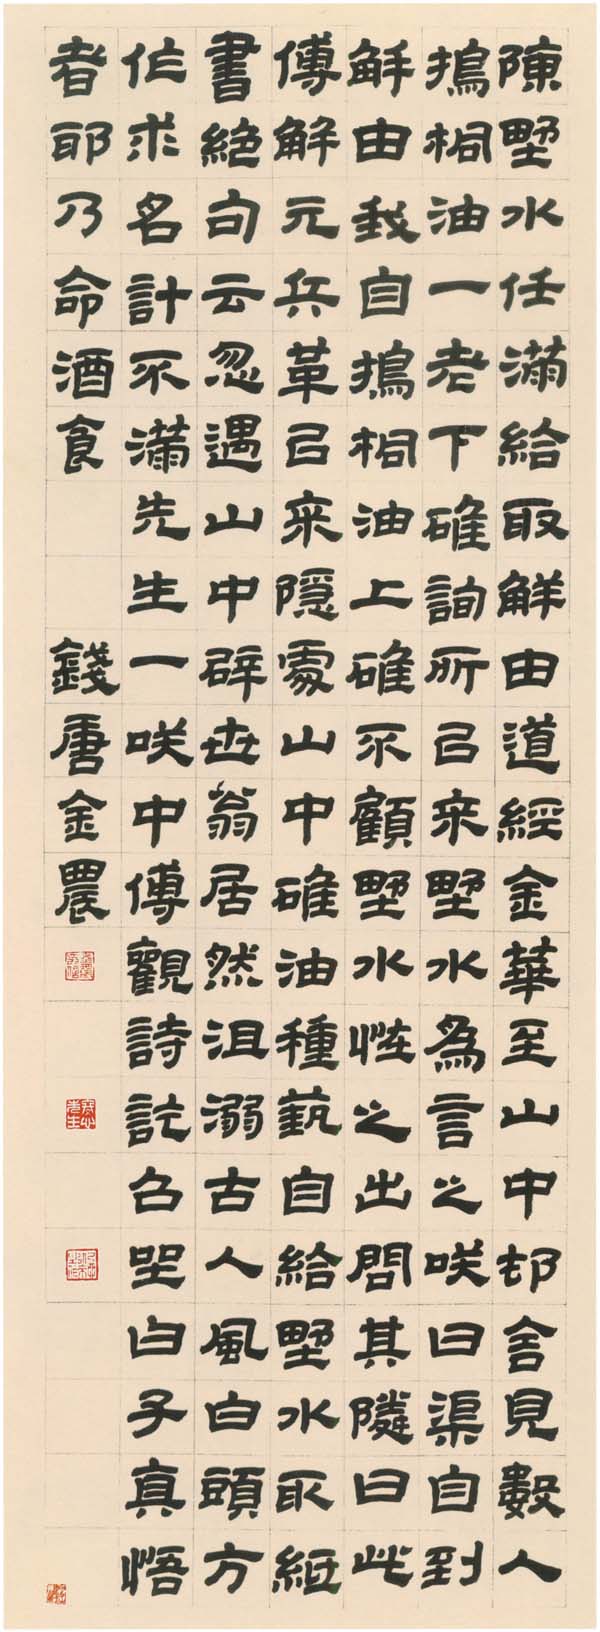 陳野水任滿給取觧由道經金華至山中邨舍見數人
搗桐油一老下碓詢所㠯来野水為言之咲曰渠自到
觧由我自搗桐油上碓不顧野水恠之出問其隣曰此
傅解元兵革㠯来隱處山中碓油種蓺自給野水取紙
書絶句云忽遇山中辟世翁居然沮溺古人風白頭方
作求名計不滿先生一咲中傅觀詩訖召坐曰子真悟
者耶乃命酒食 錢唐金農
冬心先生